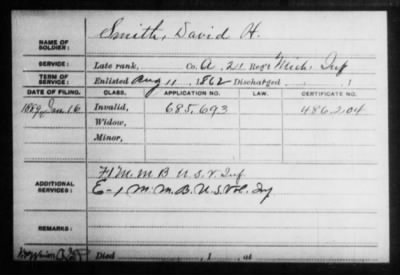 Smith, David H.
NAME OF SOLDIER:
SERVICE: Late rank, Co. A, 21 Reg't Mich. Inf
TERM OF SERVICE: Enlisted Aug 11, 1862 Discharged , 1
DATE OF FILING. CLASS. APPLICATION NO. LAW. CERTIFICATE NO.
Jan 16 Invalid, 685,693 486204
Widow,
Minor,
ADDITIONAL SERVICES: M. M B U.S.V. Inf.
E-1 M. M. B. U.S. Vol. Inf
REMARKS:
Died , 1 , at